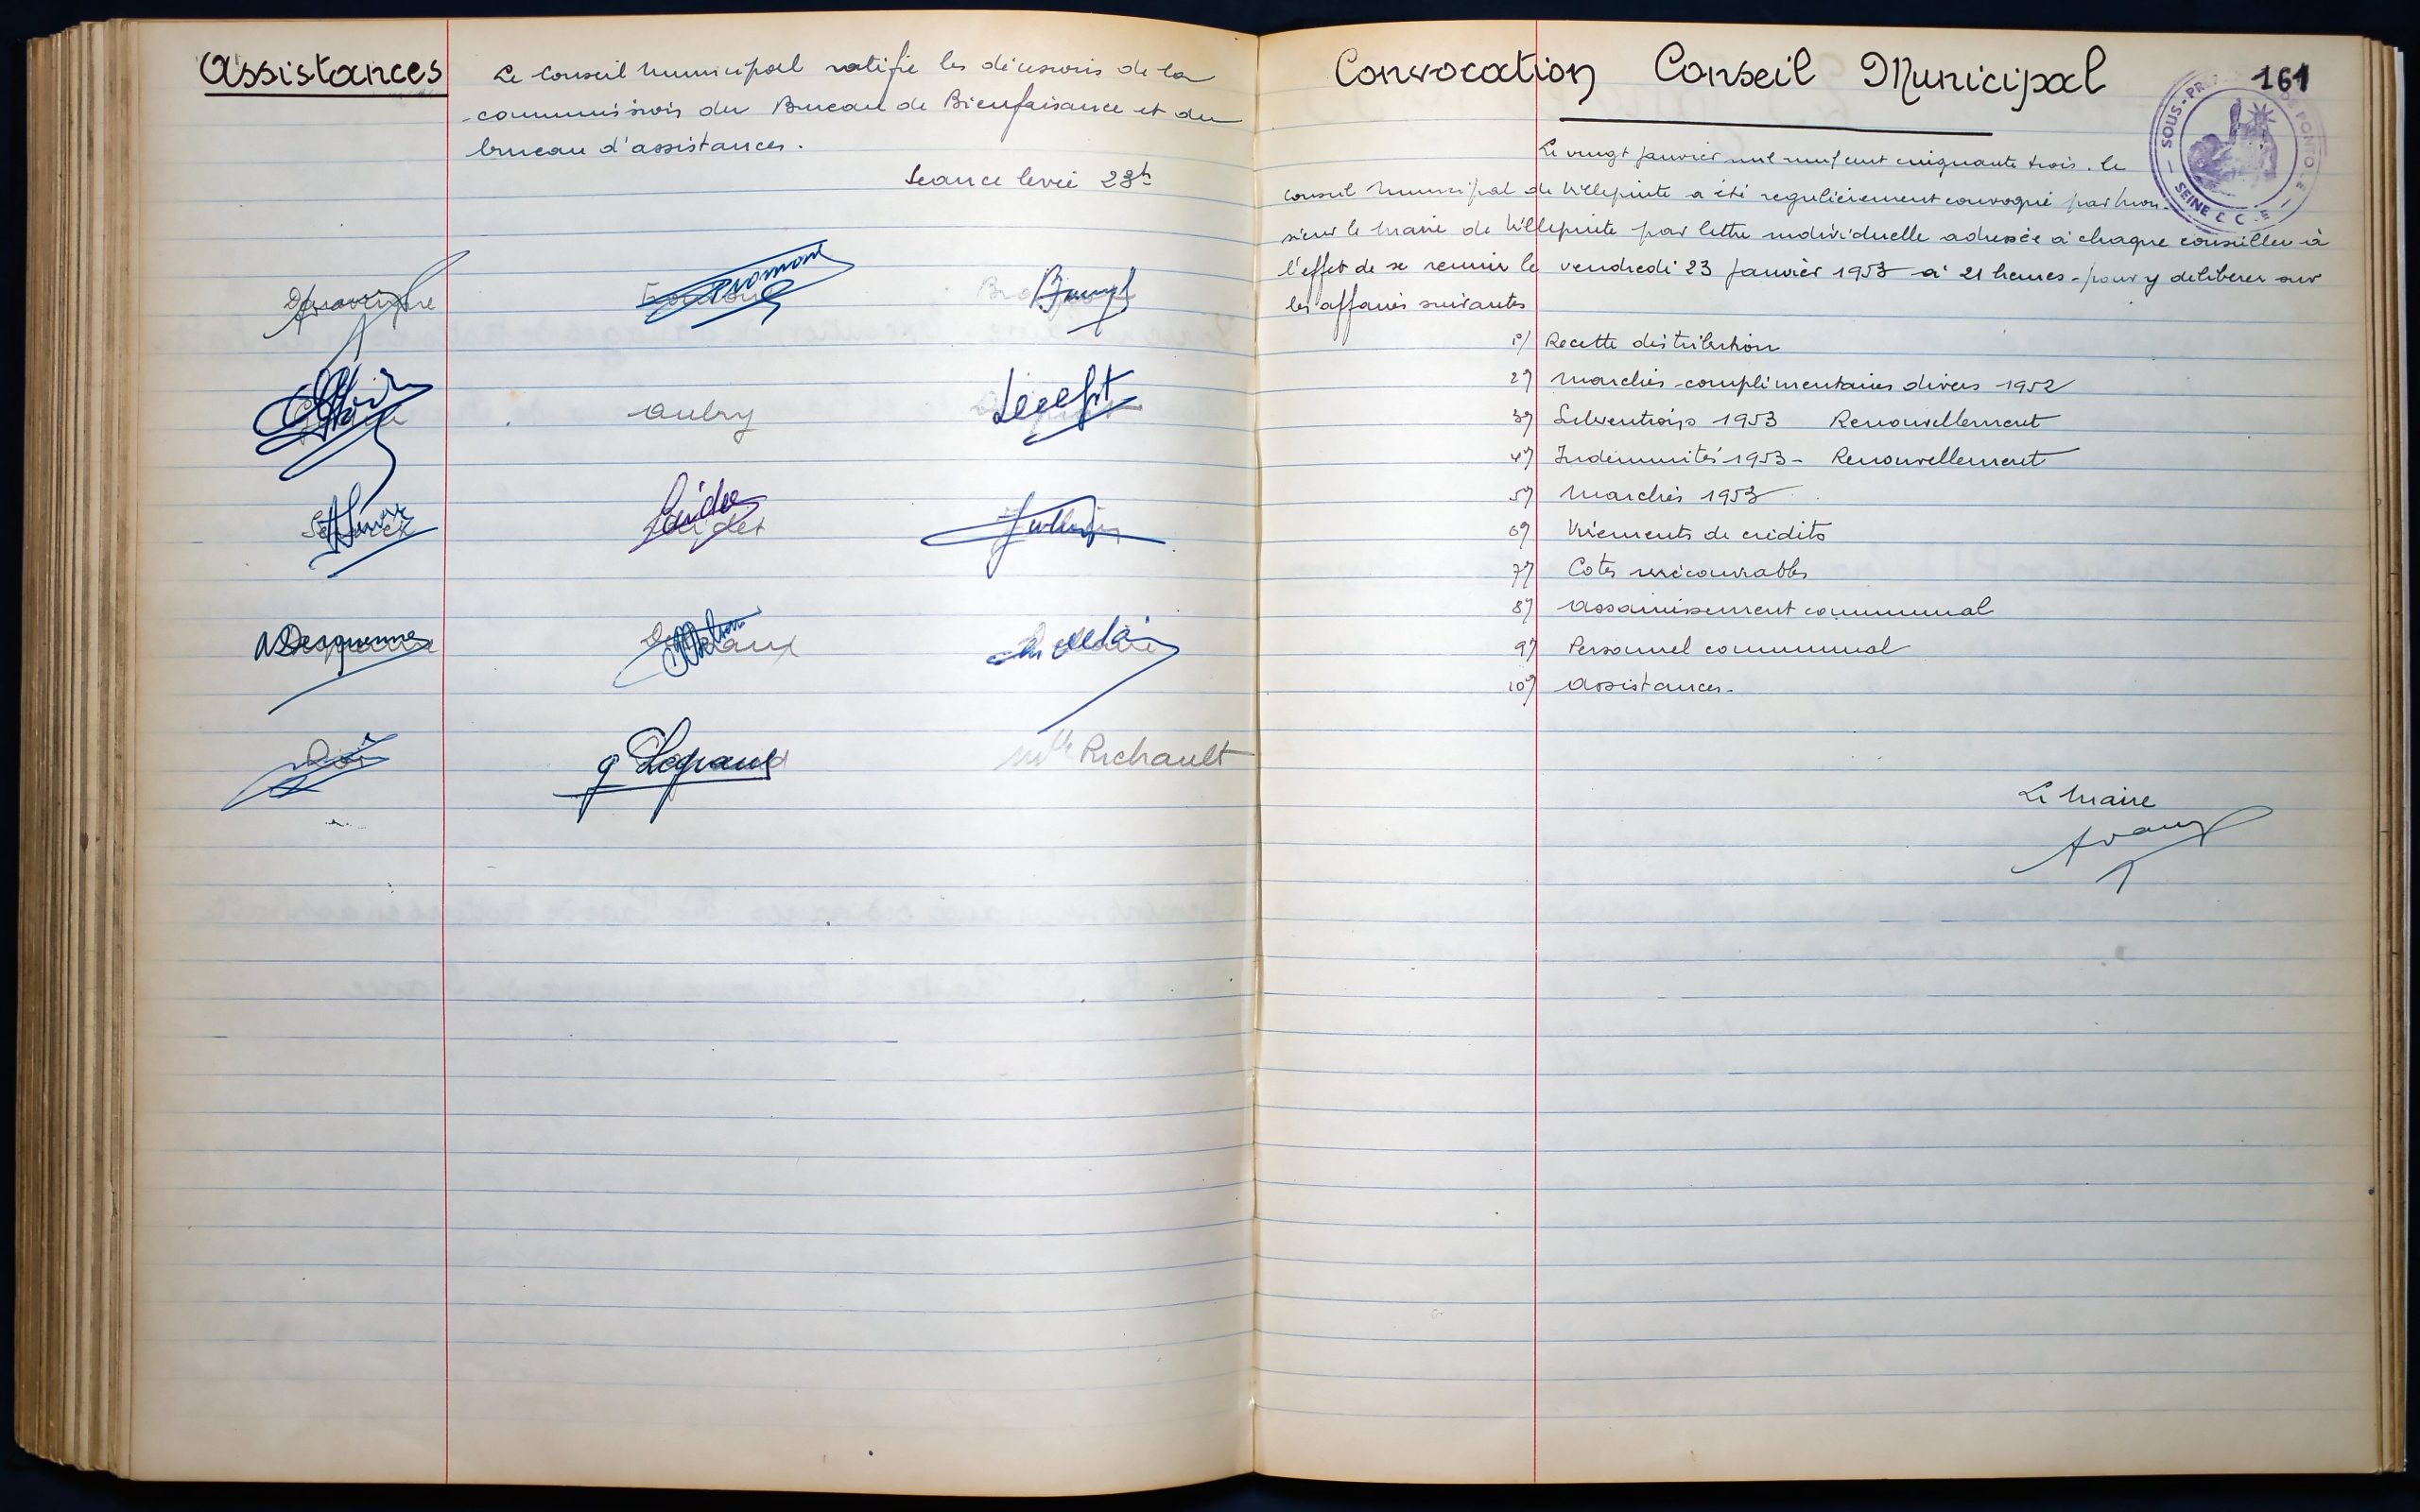 Assistances
Le Conseil Municipal ratifie les décisions de la
commission du Bureau de Bienfaisance et du
bureau d'assistances.
Seance levée 23h
Aubry
g Legrand
Mlle Richault
Convocation Conseil Municipal
161
SOUS-PR
SEINE
Le vingt Janvier mil neuf cent cinquante trois. le
Conseil Municipal de Villepinte a été regulièrement convoqué par Mon-
sieur le Maire de Villepinte par lettre individuelle adressée à chaque conseiller à
l'effet de se reunir le vendredi 23 Janvier 1953 à 21 heures - pour y deliberer sur
les affaires suivantes
1°/ Recette distribution
2°/ Marchés complimentaires divers 1952
3°/ Subventions 1953 Renouvellement
4°/ Indemnités 1953 - Renouvellement
5°/ Marchés 1953
6°/ Virements de crédits
7°/ Cotes irrécouvrables
8°/ Assainissement communal
9°/ Personnel communal
10°/ Assistances.
Le Maire